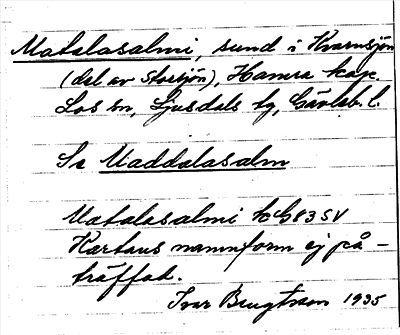 Matalasalmi, sund i Kvarnsjön
(del av Storsjön), Hamra kap.
Los sn, Ljusdals tg, Gävleb. l.
Se Maddalasalm
Matalasalmi kG83SV
Kartans namnform ej på-
träffat.
Ivar Bengtsson 1935